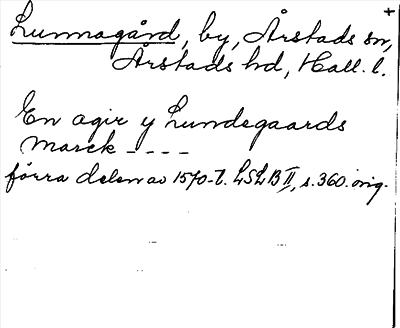 +
Lunnagård, by, Årstads sn,
Årstads hd, Hall. l.
En agir y Lundegaards
Marck - - - -
förra delen av 1570-t. LSLB II, s. 360. orig.